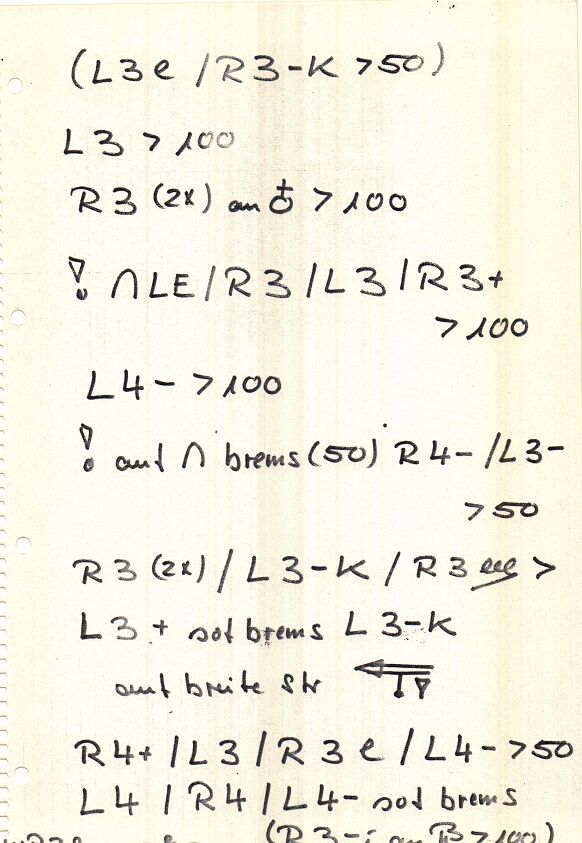 (L3e / R3-K >50)
L3 > 100
R3 (2x) an ♁ > 100
! ∩ LE / R3 / L3 / R3+
> 100
L4- > 100
! auf ∩ brems (50) R4- / L3-
> 50
R3 (2x) / L3-K / R3 eee >
L3+ sof brems L3-K
auf breite Str
R4+ / L3 / R3 e / L4- > 50
L4 / R4 / L4- sof brems
(R3-i an B > 100)